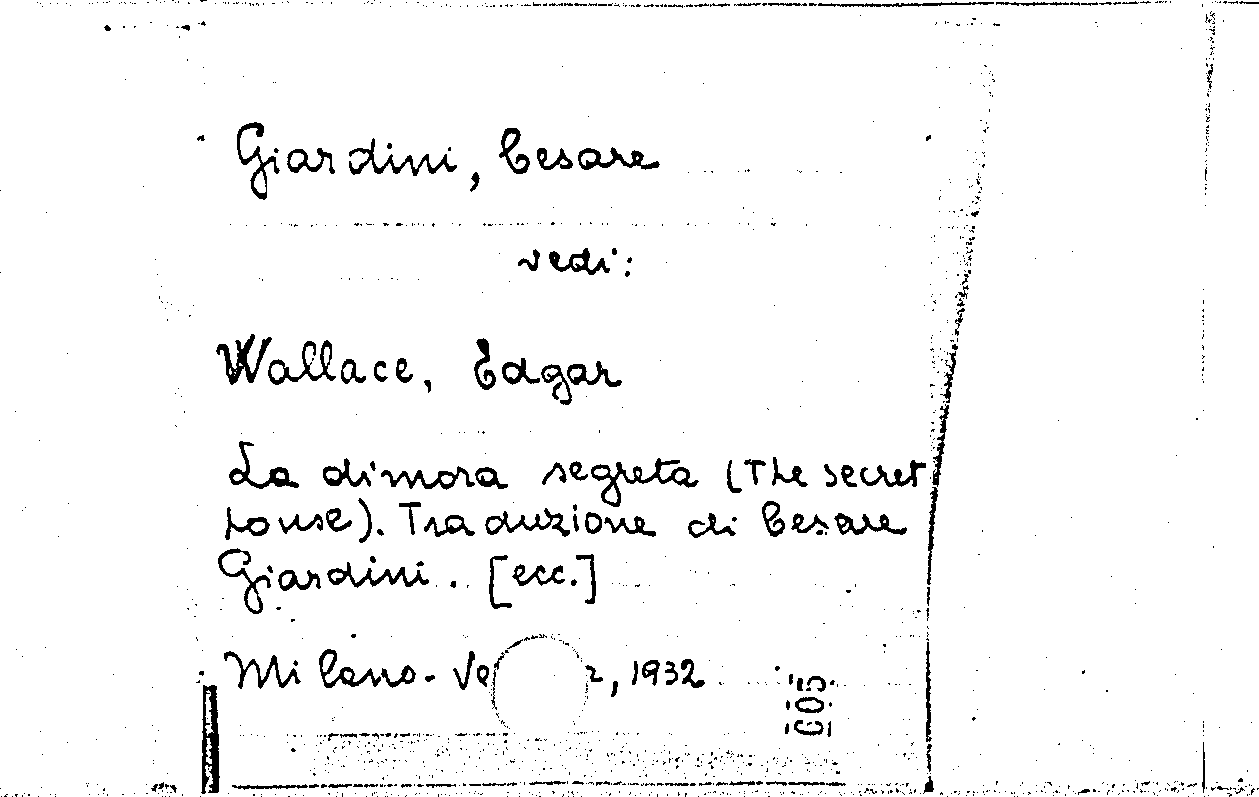 Giardini, Cesare
vedi:
Wallace, Edgar
La dimora segreta (The secret
house). Traduzione di Cesare
Giardini. [ecc.]
Milano- , 1932